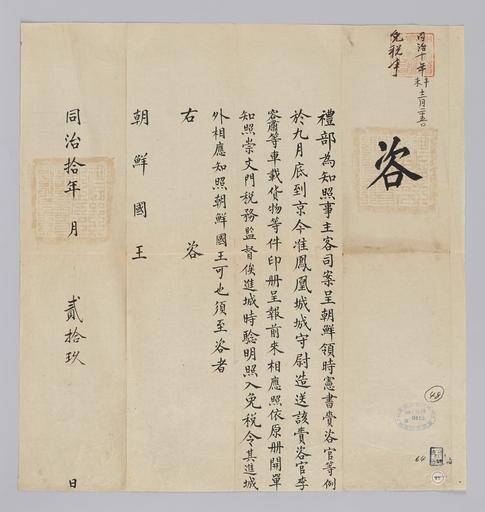 同治十年辛未
免税事
咨
禮部為知照事主客司案呈朝鮮領時憲書賫咨官等例
於九月底到京今准鳳凰城城守尉造送該賫咨官李
容肅等車載貨物等件印册呈報前來相應照依原册開單
知照崇文門税務監督俟進城時驗明照入免税令其進城
外相應知照朝鮮國王可也須至咨者
右咨
朝鮮國王
同治拾年月貳拾玖日
48
64